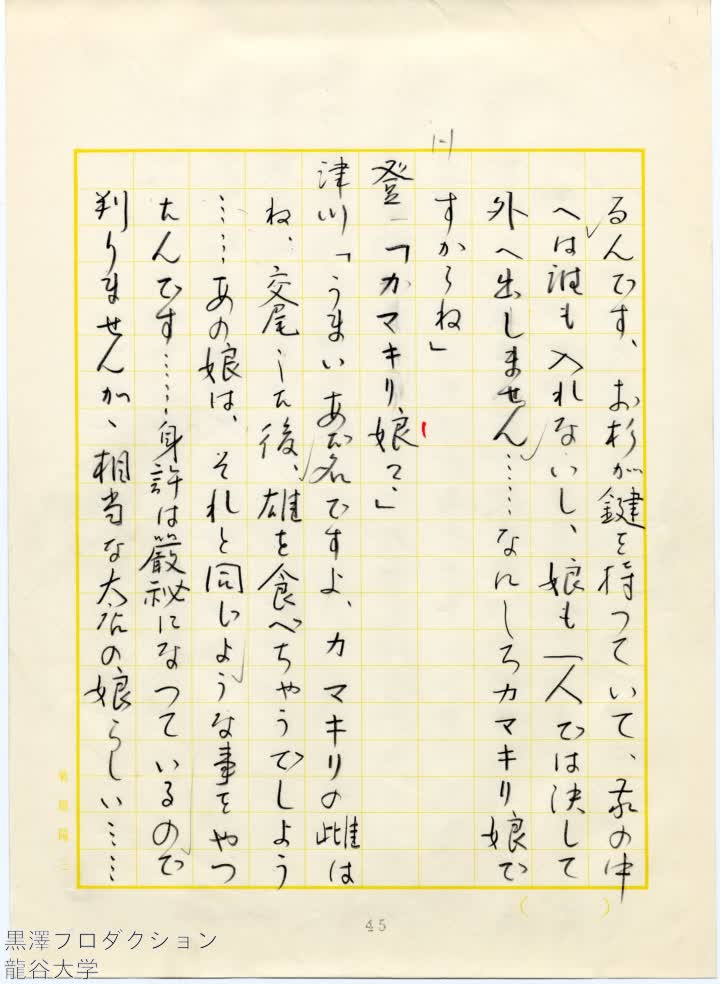 るんです、お杉が鍵を持つていて、家の中
へは誰も入れないし、娘も一人では決して
外へ出しません……なにしろカマキリ娘で
すからね」
登「カマキリ娘?」
津川「うまいあだ名ですよ、カマキリの雌は
ね、交尾した後、雄を食べちやうでしよう
……あの娘は、それと同じような事をやつ
たんです……身許は厳秘になつているので
判りませんが、相当な大店の娘らしい……
45
黒澤プロダクション
龍谷大学